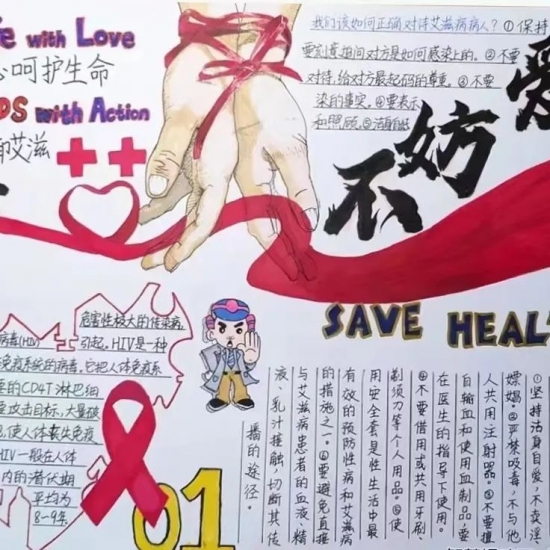 with Love
心呵护生命
with Action
艾滋
我们该如何正确对待艾滋病病人？①保持
要刻意追问对方是如何感染上的，②不要
对待，给对方最起码的尊重，④不要
和照顾。
爱
不妨
SAVE HEAL
危害性极大的传染病，
病毒(HIV)引起，HIV是一种
免疫系统的病毒，它把人体免疫系
要的CD4T淋巴细
要攻击目标，大量破
使人体丧失免疫
HIV一般在人体
内的潜伏期
平均为
8-9年
01
①坚持洁身自爱，不卖淫、
嫖娼。②严禁吸毒，不与他
人共用注射器。③不要擅
自输血和使用血制品，要
在医生的指导下使用。
④不要借用或共用牙刷
剃须刀等个人用品。⑤使
用安全套是性生活中最
有效的预防性病和艾滋病
的措施之一。⑥要避免直接
与艾滋病患者的血液、精
液、乳汁接触，切断其传
播的途径。